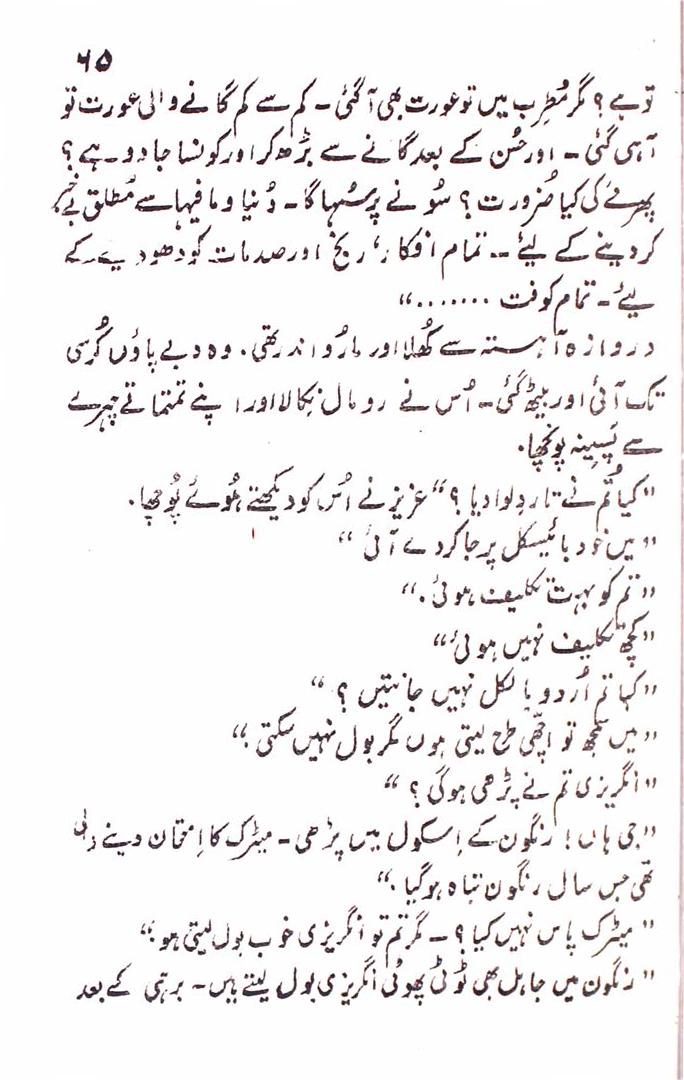 ۶۵
تو ہے؟ مگر مُطرِب میں تو عورت بھی آگئی۔ کم سے کم گانے والی عورت تو
آہی گئی۔ اور حُسن کے بعد گانے سے بڑھ کر اور کونسا جادو ہے؟
پھرنے کی کیا ضرورت؟ سونے پر سُہاگا۔ دُنیا و مافیہا سے مُطلق بے خبر
کر دینے کے لیٔے۔۔ تمام افکار، رنج اور صدمات کو دھو دینے کے
لیٔے۔ تمام کوفت ......."
دروازہ آہستہ سے کُھلا اور مارُو اندر تھی۔ وہ دبے پاؤں کُرسی
تک آئی اور بیٹھ گئی۔ اُس نے رومال نِکالا اور اپنے تمتماتے چہرے
سے پَسِینہ پونچھا۔
"کیا تُم نے تار دِلوا دیا؟" عزیز نے اُس کو دیکھتے ہُوئے پُوچھا۔
"میں خود بائیسکل پر جا کر دے آئی"
"تم کو بہت تکلیف ہوئی۔"
"کُچھ تکلیف نہیں ہوئی"
"کیا تم اُردو بالکل نہیں جانتیں؟"
"میں سمجھ تو اچھّی طرح لیتی ہوں مگر بول نہیں سکتی۔"
"انگریزی تم نے پڑھی ہوگی؟"
"جی ہاں! رنگون کے اِسکول میں پڑھی۔ میٹرک کا اِمتحان دینے والی
تھی جس سال رنگون تباہ ہوگیا۔"
"میٹرک پاس نہیں کیا؟۔ مگر تم تو انگریزی خوب بول لیتی ہو۔"
"رنگون میں جاہل بھی ٹوٹی پھوٹی انگریزی بول لیتے ہیں۔ برہمی کے بعد